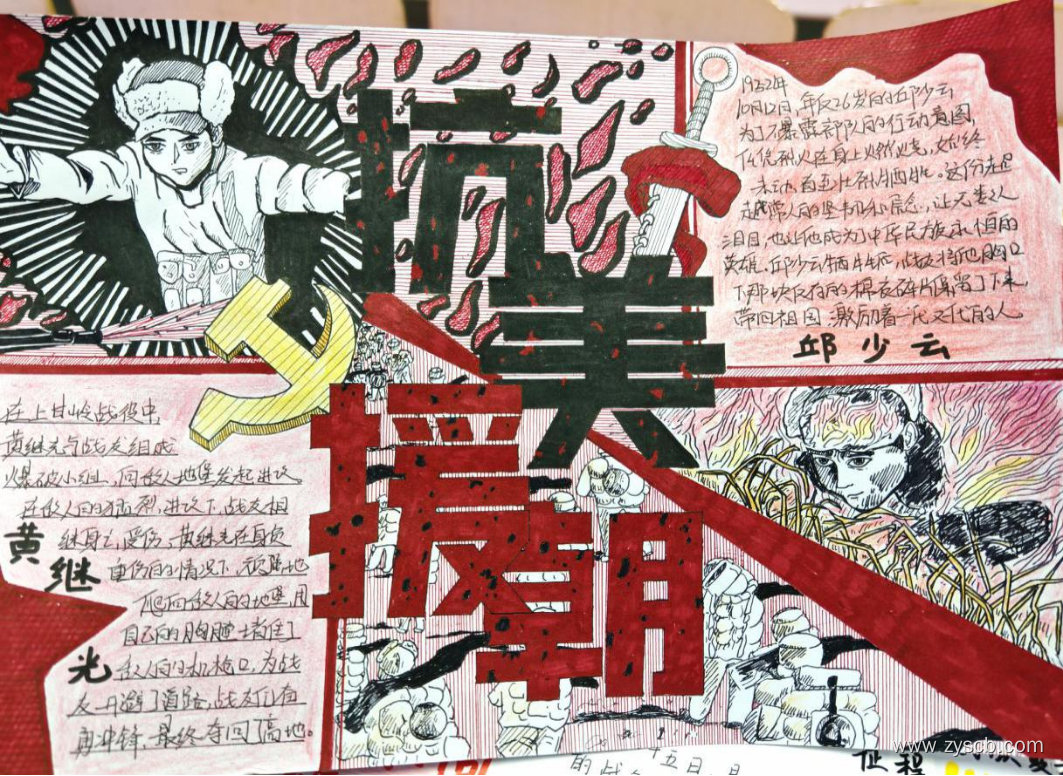 抗美
援朝
1952年
10月12日,年仅26岁的邱少云
为了不暴露部队的行动意图,
任凭烈火在身上燃烧,始终
未动,直至壮烈牺牲。这份超
越常人的坚韧和信念,让无数人
泪目,也让他成为了中华民族永恒的
英雄,邱少云牺牲后,战友将他胸口
下那块仅有的棉衣碎片保留了下来,
带回祖国,激励着一代又一代的人
邱少云
在上甘岭战役中,
黄继光与战友组成
爆破小组,向敌人地堡发起进攻
在敌人的猛烈进攻下,战友相
继身亡,受伤,黄继光在身负
重伤的情况下,顽强地
爬向敌人的地堡,用
自己的胸膛堵住了
敌人的机枪口,为战
友开辟了道路,战友们在
再冲锋,最终夺回了高地。
黄继光
十五日,是
的战
征程
www.zyscb.com